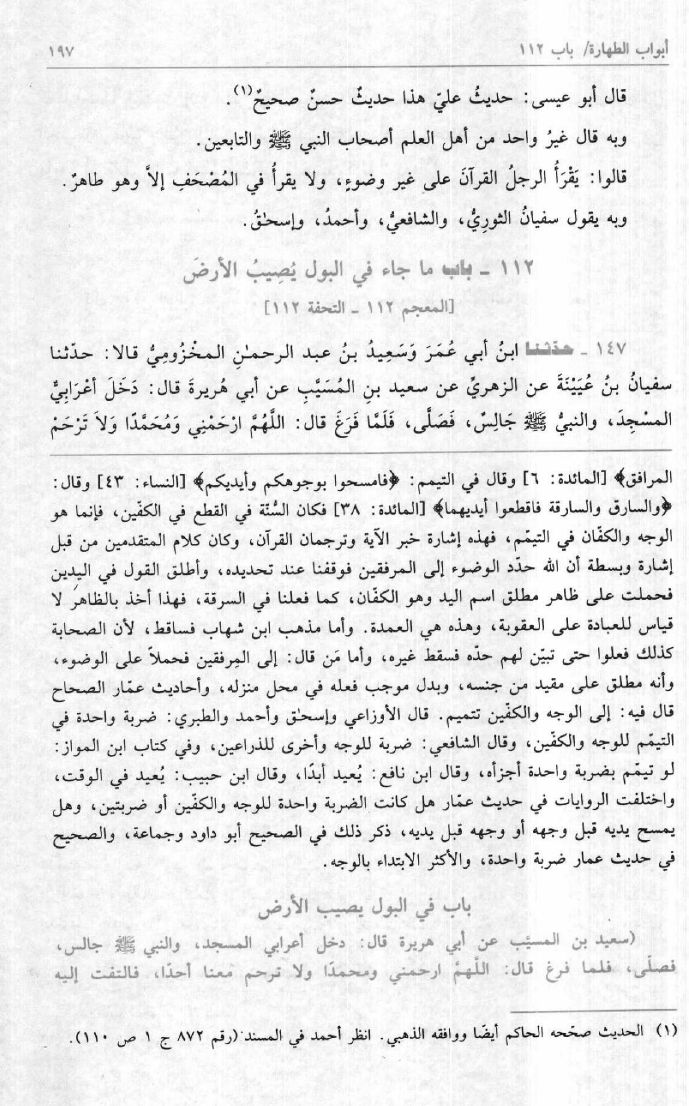 أبواب الطهارة/ باب ١١٢
١٩٧
قال أبو عيسى: حديثُ عليّ هذا حديثٌ حسنٌ صحيحٌ(١).
وبه قال غيرُ واحد من أهل العلم أصحاب النبي ﷺ والتابعين.
قالوا: يَقْرَأُ الرجلُ القرآنَ على غير وضوءٍ، ولا يقرأُ في المُصْحَفِ إلاَّ وهو طاهرٌ.
وبه يقول سفيانُ الثوريُّ، والشافعيُّ، وأحمدُ، وإسحٰقُ.
١١٢ ـ باب ما جاء في البول يُصِيبُ الأرضَ
[المعجم ١١٢ ـ التحفة ١١٢]
١٤٧ ـ حدّثنا ابنُ أبي عُمَرَ وَسَعِيدُ بنُ عبد الرحمـٰنِ المخْزُوميُّ قالا: حدّثنا
سفيانُ بنُ عُيَيْنَةَ عن الزهريِّ عن سعيد بنِ المُسَيَّبِ عن أبي هُريرةَ قال: دَخَلَ أعْرَابِيٌّ
المسْجِدَ، والنبيُّ ﷺ جَالِسٌ، فَصَلَّى، فَلَمَّا فَرَغَ قال: اللَّهُمَّ ارْحَمْنِي وَمُحَمَّدًا وَلاَ تَرْحَمْ
المرافق﴾ [المائدة: ٦] وقال في التيمم: ﴿فامسحوا بوجوهكم وأيديكم﴾ [النساء: ٤٣] وقال:
﴿والسارق والسارقة فاقطعوا أيديهما﴾ [المائدة: ٣٨] فكان السُّنّة في القطع في الكفّين، فإنما هو
الوجه والكفّان في التيمّم، فهذه إشارة خبر الآية وترجمان القرآن، وكان كلام المتقدمين من قبل
إشارة وبسطة أن الله حدّد الوضوء إلى المرفقين فوقفنا عند تحديده، وأطلق القول في اليدين
فحملت على ظاهر مطلق اسم اليد وهو الكفّان، كما فعلنا في السرقة، فهذا أخذ بالظاهر لا
قياس للعبادة على العقوبة، وهذه هي العمدة. وأما مذهب ابن شهاب فساقط، لأن الصحابة
كذلك فعلوا حتى تبيّن لهم حدّه فسقط غيره، وأما مَن قال: إلى المِرفقين فحملاً على الوضوء،
وأنه مطلق على مقيد من جنسه، وبدل موجب فعله في محل منزله، وأحاديث عمّار الصحاح
قال فيه: إلى الوجه والكفّين تتميم. قال الأوزاعي وإسحـٰق وأحمد والطبري: ضربة واحدة في
التيمّم للوجه والكفّين، وقال الشافعي: ضربة للوجه وأخرى للذراعين، وفي كتاب ابن المواز:
لو تيمّم بضربة واحدة أجزأه، وقال ابن نافع: يُعيد أبدًا، وقال ابن حبيب: يُعيد في الوقت،
واختلفت الروايات في حديث عمّار هل كانت الضربة واحدة للوجه والكفّين أو ضربتين، وهل
يمسح يديه قبل وجهه أو وجهه قبل يديه، ذكر ذلك في الصحيح أبو داود وجماعة، والصحيح
في حديث عمار ضربة واحدة، والأكثر الابتداء بالوجه.
باب في البول يصيب الأرض
(سعيد بن المسيّب عن أبي هريرة قال: دخل أعرابي المسجد، والنبي ﷺ جالس،
فصلّى، فلما فرغ قال: اللّهمّ ارحمني ومحمدًا ولا ترحم معنا أحدًا، فالتفت إليه
(١) الحديث صحّحه الحاكم أيضًا ووافقه الذهبي. انظر أحمد في المسند (رقم ٨٧٢ ج ١ ص ١١٠).